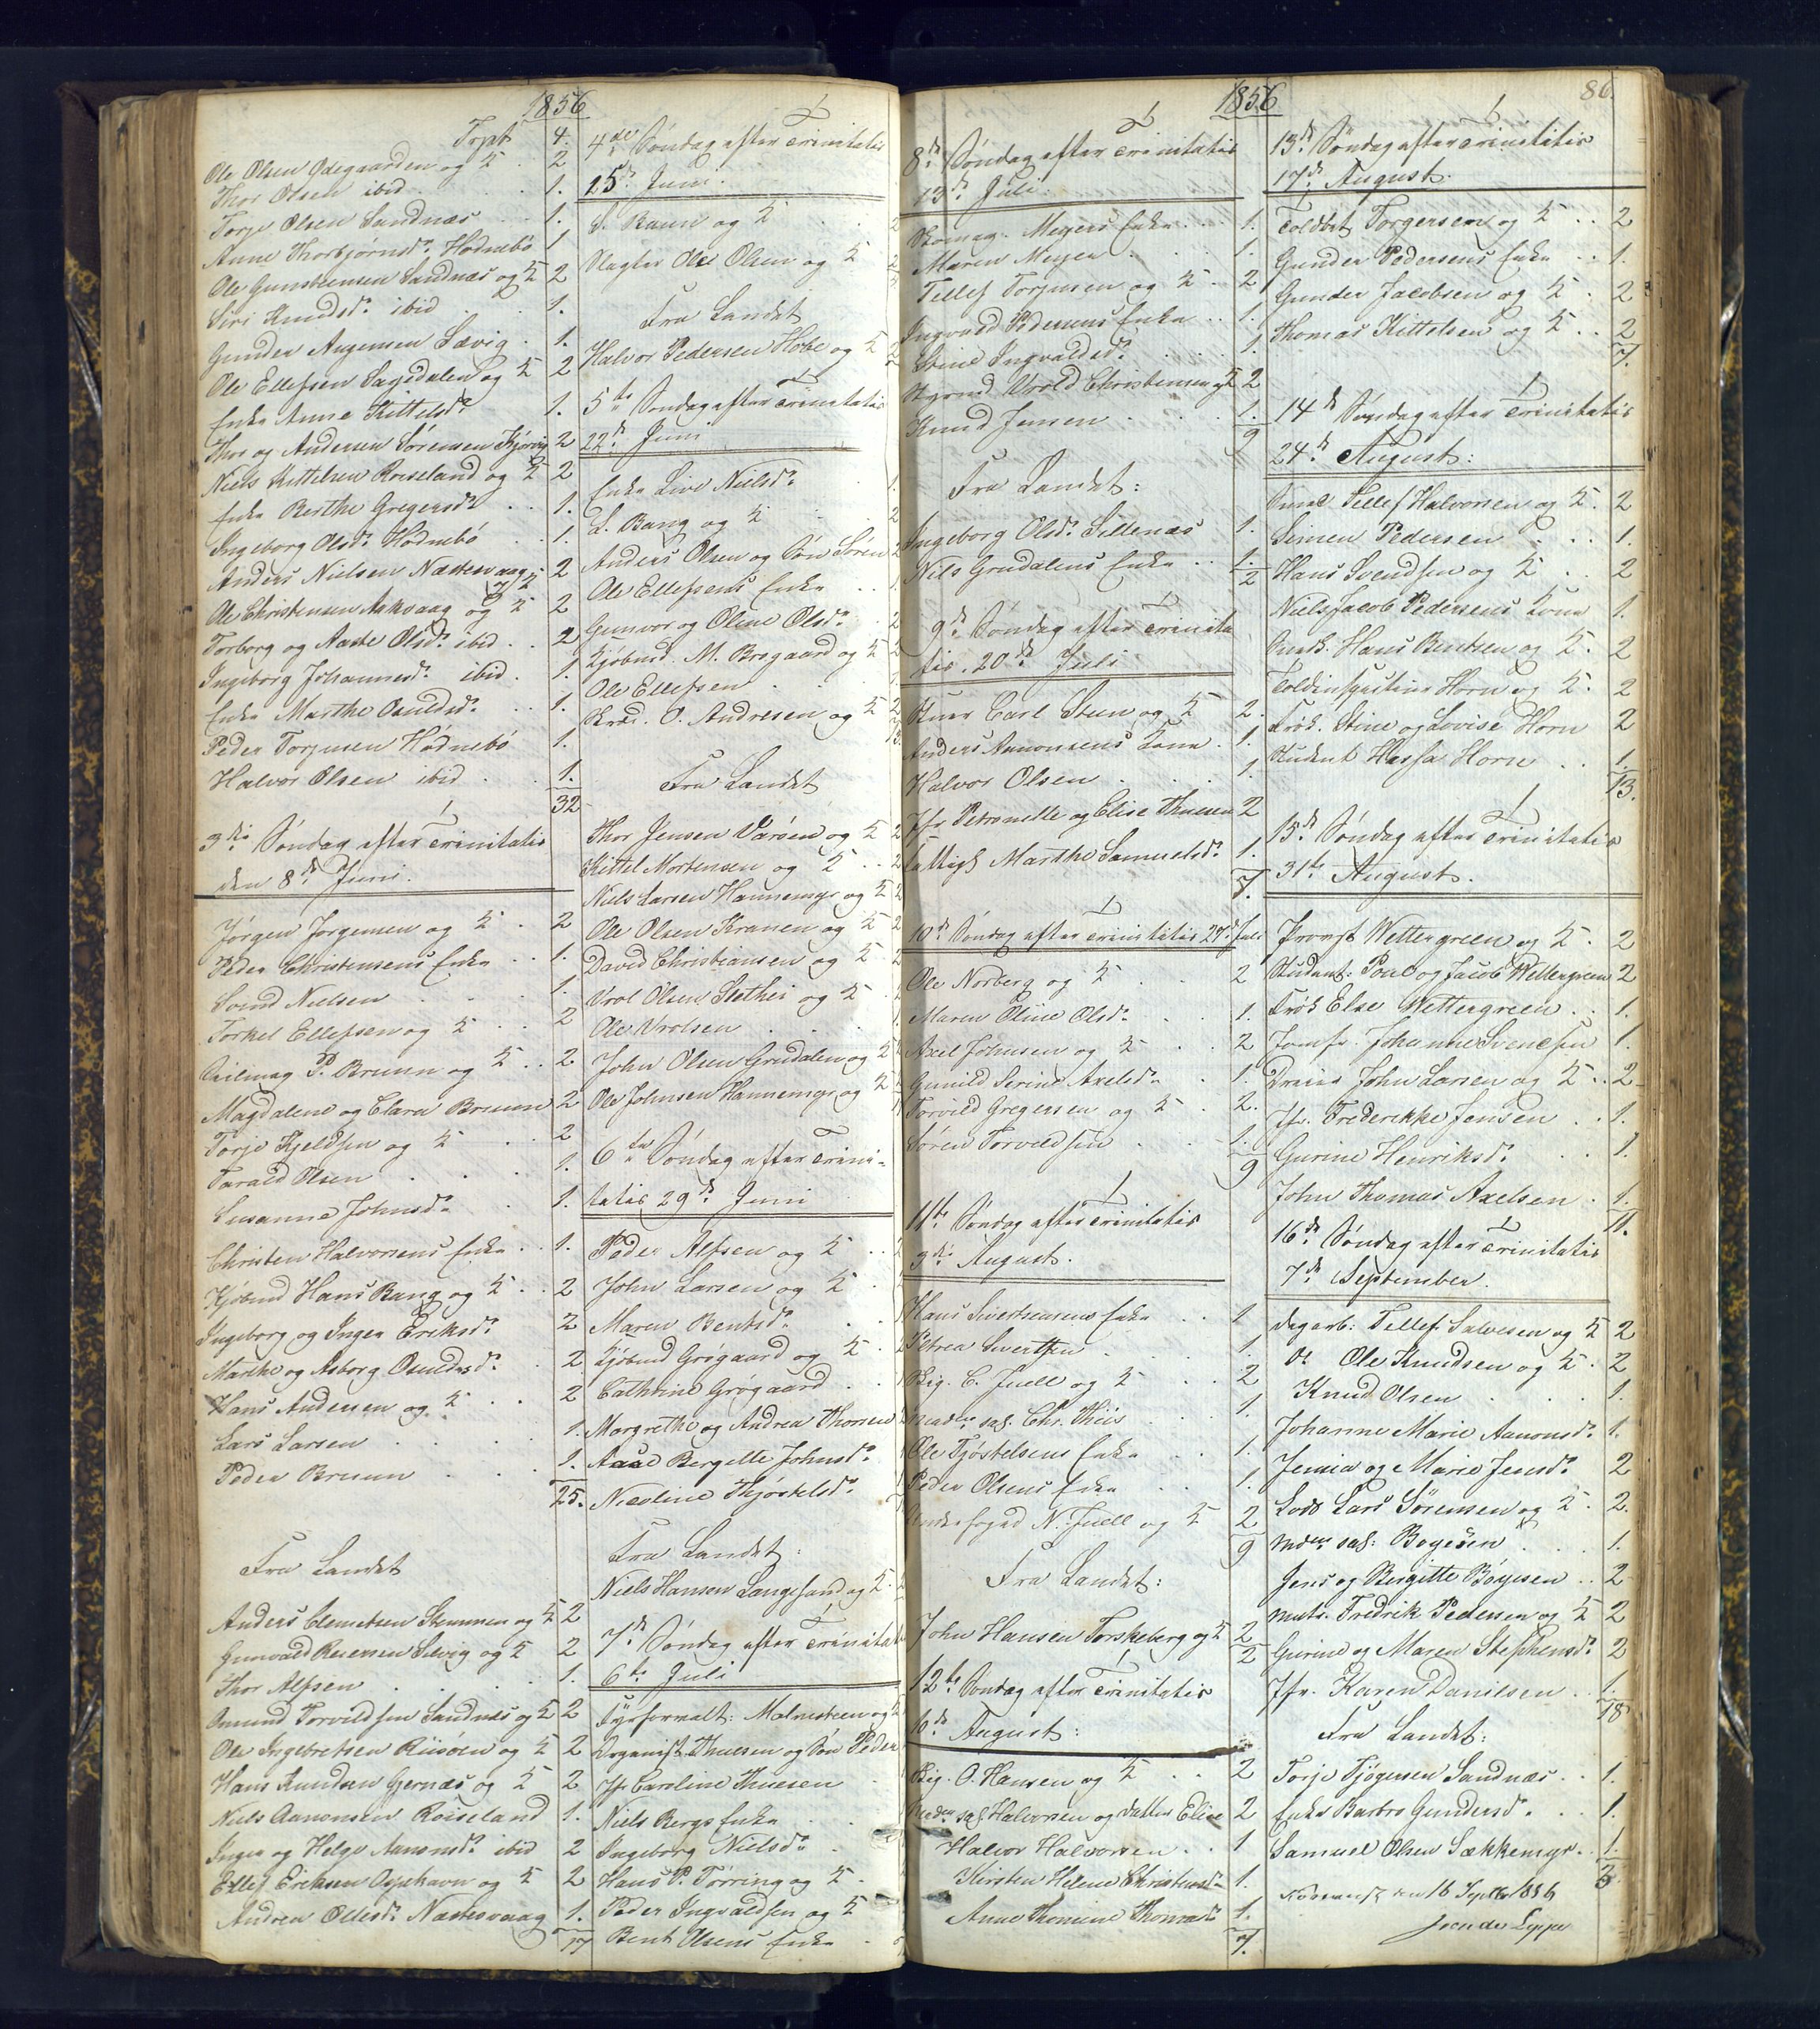 1856
Trpt 4.
Ole Olsen Ødegaarden og K. 2
Thor Olsen ibid 1.
Torje Olsen Sandnæs 1.
Anne Thorbjørnsdr Hødnebø 1
Ole Gunsteensen Sandnæs og K 2
Siri Knudsdr ibid 1.
Gunder Aagensen Sævig 1.
Ole Ellefsen Sagedalen og K 2
Enke Anne Kittelsdr 1.
Thor og Andersen Sørensen Kjørvig 2
Niels Kittelsen Roiseland og K 2
Enke Berthe Gregersdr 1.
Ingeborg Olsdr Hødnebø 1.
Anders Nielsen Næstesvaag og K 2
Ole Christensen Askvaag og K 2
Torborg og Aaste Olsdr ibid 2
Ingeborg Johannesdr ibid 1
Enke Marthe Osuldsdr 1.
Peder Torjusen Hødnebø 1.
Halvor Olsen ibid 1.
32
3die Søndag efter Trinitatis
den 8de Juni.
Jørgen Jørgensen og K 2
Peder Christensens Enke 1.
Svend Nielsen 1.
Torkel Ellefsen og K 2
Seilmag P. Bruun og K 2
Magdalene og Clara Bruun 2
Torje Kjeldsen og K 2
Tarald Olsen 1.
Susanne Johnsdr 1.
Christen Halvorsens Enke 1.
Kjøbmd Hans Bang og K 2
Ingeborg og Inger Eriksdr 2
Marthe og Asborg Osuldsdr 2
Hans Andersen og K 2
Lars Larsen 1.
Peder Bruun 1.
25.
Fra Landet
Anders Clemetsen Stemmen og K 2
Gunvald Reiersen Silvig og K 2
Thor Alfsen 1.
Omund Torvildsen Sandnæs og K 2
Ole Ingebretsen Riisøen og K 2
Hans Knudsen Gjernæs og K 2
Niels Aanonsen Roiseland 1.
Inger og Helge Aanonsdr ibid 2
Ellef Eriksen Ospehavn og K 2
Andrea Ollesdr Næstesvaag 1.
17
4de Søndag efter Trinitatis
15de Juni.
S. Raun og K 2
Slagter Ole Olsen og K 2
Fra Landet
Halvor Pedersen Høbe og K 2
5te Søndag efter Trinitatis
22de Juni
Enke Live Nielsdr 1.
L. Bang og K 2
Anders Olsen og Søn Søren 2
Ole Ellefsens Enke
Gunvor og Oline Olsdr 2
Kjøbmd. M. Brogaard og K 2
Ole Ellefsen
Skræd. O. Andresen og K 2
13.
Fra Landet
Thor Jensen Varøen og K 2
Kittel Mortensen og K 2
Niels Larsen Hannemyr og K 2
Ole Olsen Kranen og K 2
David Christiansen og K 2
Vrol Olsen Stethei og K
Ole Vrolsen
John Olsen Grudalen og K
Ole Johnsen Hannemyr og K
6te Søndag efter Trini-
tatis 29de Juni
Peder Alfsen og K
John Larsen og K
Maren Bentsdr
Kjøbmd Grøgaard og K
Cathrine Grøgaard
Margrethe og Andrea Thorsen
Aase Bergitte Johnsdr
Nicoline Thjøstelsdr
Fra Landet:
Niels Hansen Langesand og K
7de Søndag efter Trinitat
6te Juli
Fyrforvalt: Malmsteen og K
Organist Thuesen og Søn Peder
Jfr Caroline Thuesen
Niels Bergs Enke
Ingeborg Nielsdr
Hans P. Tørring og K
Peder Ingvaldsen og K
Bent Olsens Enke
1856
8de Søndag efter Trinitatis
13de Juli.
Skomag. Meyers Enke 1.
Maren Meyer 1.
Tellef Torjussen og K 2
Ingvald Pedersens Enke 1.
Stine Ingvaldsdr 1.
Styrmd Vrold Christensen og K 2
Knud Jensen 1.
9
Fra Landet:
Ingeborg Olsdr Sillenæs 1.
Nils Grudalens Enke 1.
2
9de Søndag efter Trinita
tis. 20de Juli
Stuer Carl Steen og K 2.
Anders Aanonsens Kone 1.
Halvor Olsen 1.
Jfr Petronelle og Elise Thuesen 2
Fattigl Marthe Samuelsdr 1.
7.
10de Søndag efter Trinitatis 27de Juli
Ole Norberg og K 2
Maren Oline Olsdr 1.
Axel Johnsen og K 2
Gunild Serine Axelsdr 1.
Torvild Gregersen og K 2.
Søren Torvildsen 1.
9
11te Søndag efter Trinitatis
3die August.
Hans Sivertsens Enke 1
Petrea Sivertsen 1.
Big. C. Juell og K 2
Madm sal. Chr. Thiis 1
Ole Tjøstelsens Enke 1.
Peder Olsens Enke 1.
Underfoged N. Juell og K 2
9
Fra Landet:
John Hansen Torskeberg og K 2
2
12te Søndag efter Trinitatis
10de August:
Big. O. Hansen og K 2
Madm sal Halvorsen og datter Elise 2
Halvor Halvorsen 1
Kirsten Helene Christensdr 1.
Anne Thomine Thomasdr 1.
7.
86.
13de Søndag efter Trinitatis
17de August.
Toldbet Torgersen og K 2
Gunder Pedersens Enke 1.
Gunder Jacobsen og K 2
Thomas Kittelsen og K 2
7.
14de Søndag efter Trinitatis
24de August:
Tellef Halvorsen og K. 2
Simen Pedersen 1.
Hans Svendsen og K 2
Niels Jacob Pedersens Kone 1.
Hans Bentsen og K. 2
Toldinspecteur Horn og K. 2
Frøk. Stine og Lovise Horn 2
Student Hassa Horn 1.
13.
15de Søndag efter Trinitatis
31te August.
Provst Wettergreen og K. 2
Student: Poul og Jacob Wettergreen 2
Frøk Else Wettergreen 1.
Jomfr. Johanne Svendsen 1.
Dreier John Larsen og K 2
Jfr. Frederikke Jensen 1.
Gurine Henriksdr 1.
John Thomas Axelsen 1.
11.
16de Søndag efter Trinitatis
7de September.
Dagarb: Tellef Salvesen og K 2
do Ole Knudsen og K. 2
Knud Olsen 1.
Johanne Marie Aanonsdr 1.
Jensia og Marie Jensdr 2
Lods Lars Sørensen og K. 2.
Mdm sal: Boyesen 1.
Jens og Birgitte Boyesen 2
Matr. Fredrik Pedersen og K 2
Gurine og Maren Stephensdr 2
Jfr. Karen Danielsen 1.
18
Fra Landet:
Torje Tjøgersen Sandnæs 1.
Enke Barbro Gundersdr. 1.
Samuel Olsen Sækkemyr. 1.
3
den 16 Septbr 1856